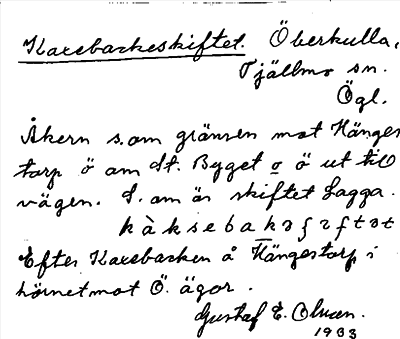 Kaxebackeskiftet. Öberkulla,
Tjällmo sn.
Ögl.
Åkern s.om gränsen mot Hänges
torp ö om St. Byget o ö ut till
vägen. S. om är skiftet Lagga.
kàksebakəʃɿftət
Efter Kaxebacken å Hängestorp i
hörnet mot Ö. ägor.
Gustaf E. Olsson.
1933